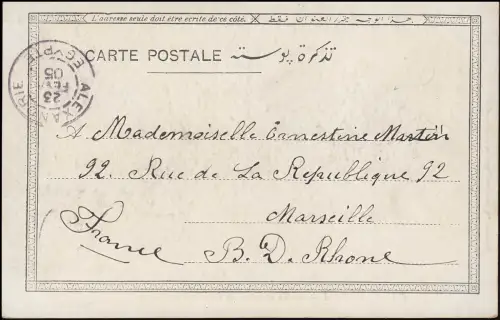 L'adresse seule doit être écrite de ce côté.
هذا الوجه محرر العنوان فقط
CARTE POSTALE
تذكرة پوسته
ALEXANDRIE
EGYPTE
23
FEV
05
A Mademoiselle Ernestine Martin
92. Rue de La Republique 92
Marseille
France
B. D. Rhone